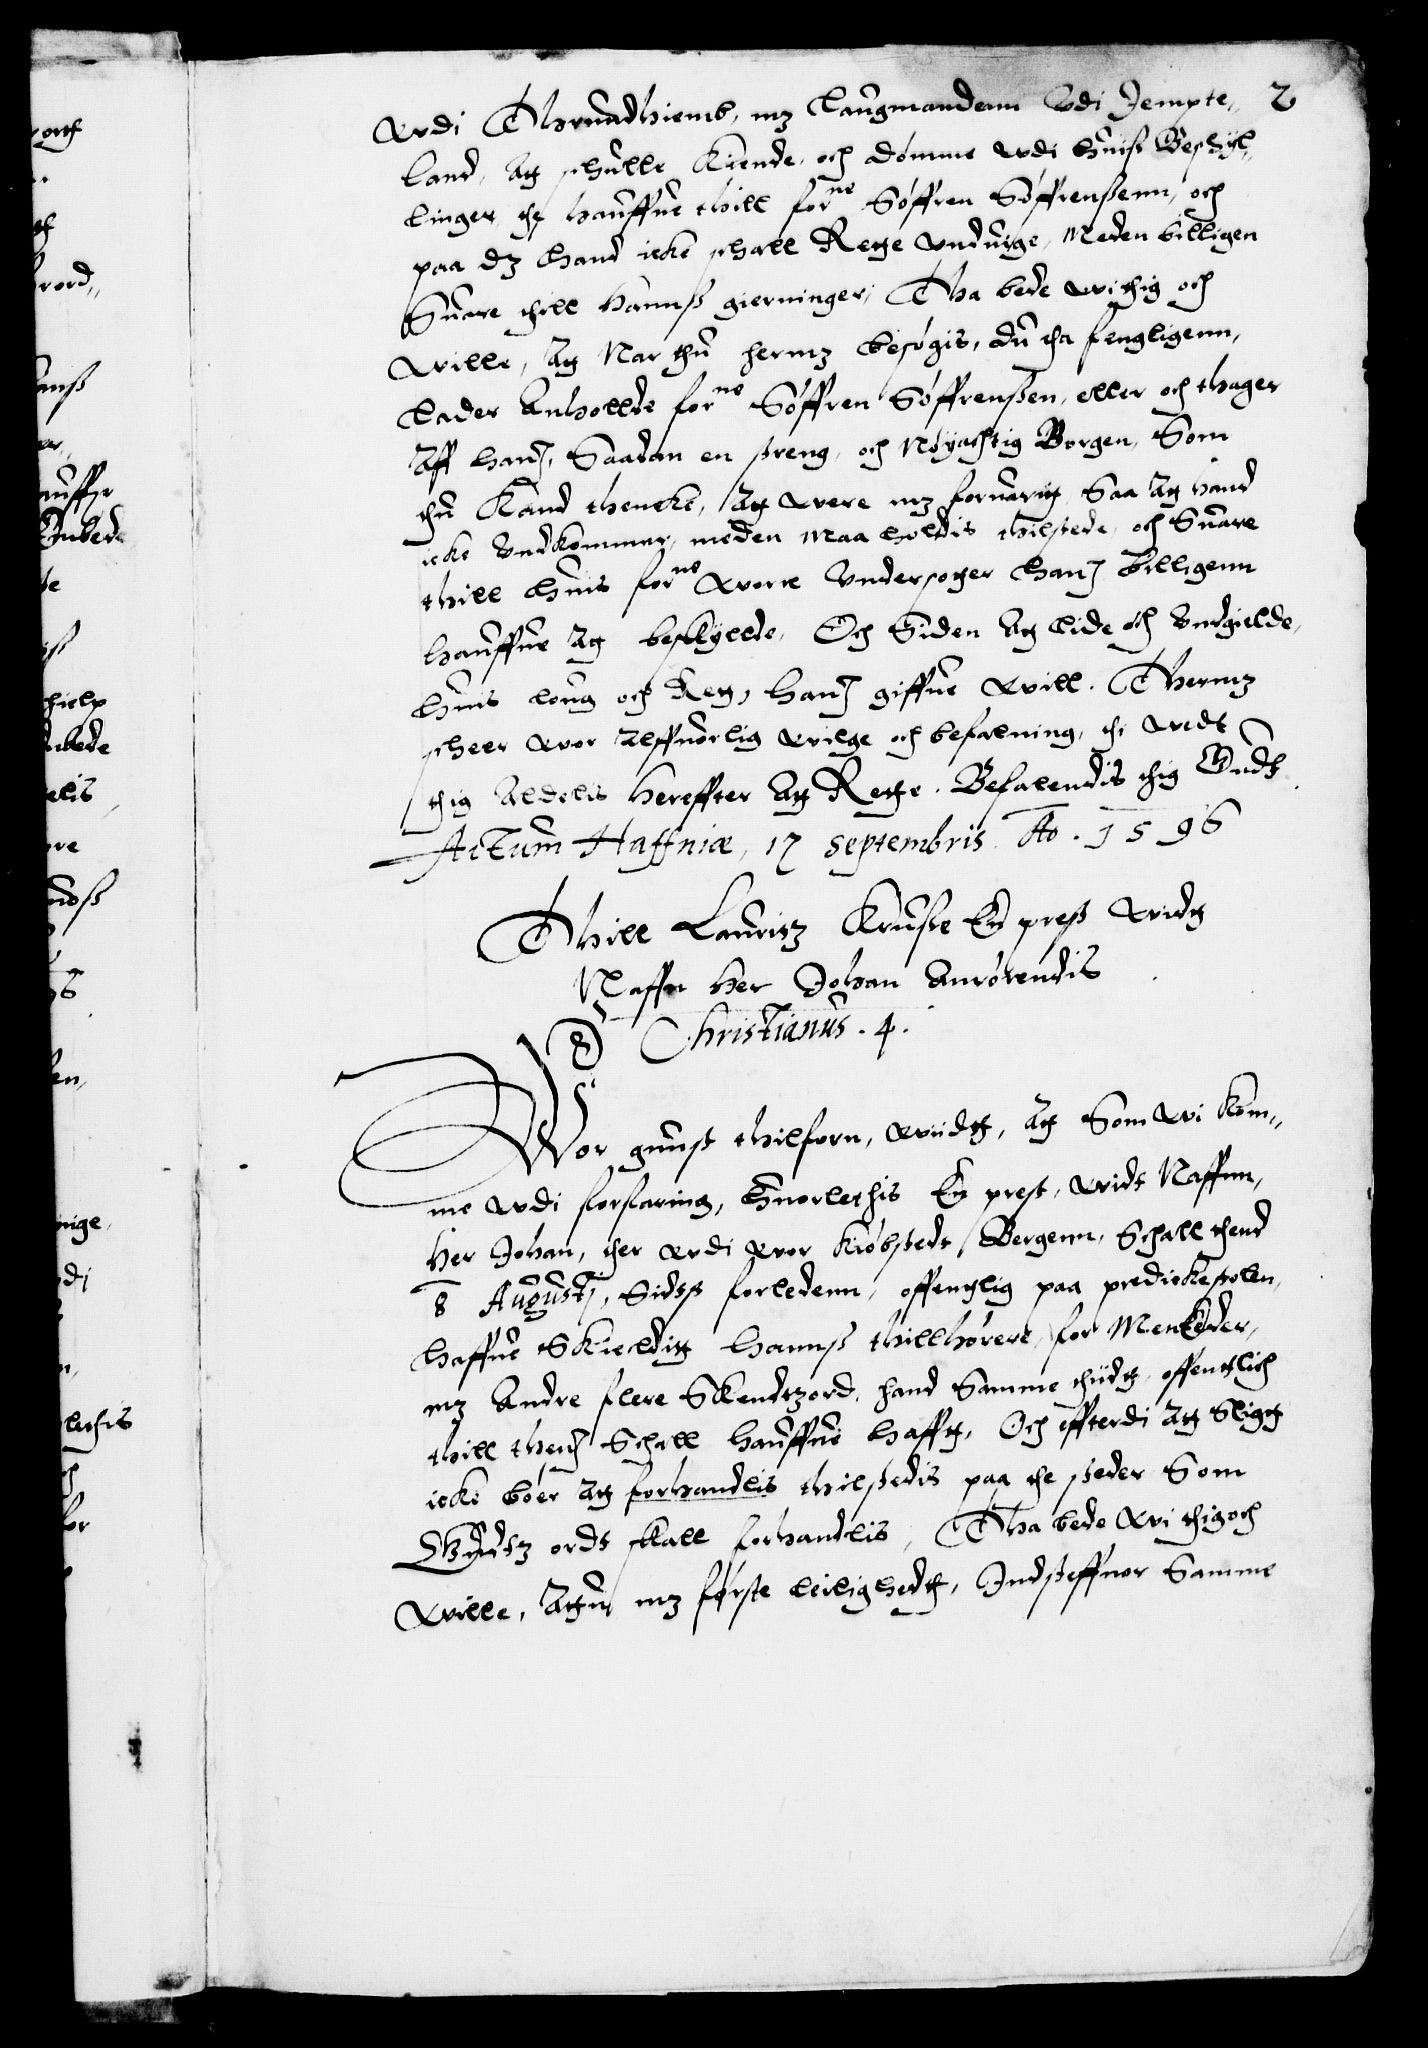 2
wdi Thrundhiemb, mz Laugmandenn Udi Jempte„
land, Att schulle Kiende, och dømme wdi huis Beschyl„
linger, the hauffue thill forne Søffren Søffrenßenn, och
paa dz hand icke schall Rette undwige, Meden billigen
Suare thill hanns gierninger, Tha bede wi thig och
wille, Att Nar thu hermz besøgis, du tha fengligenn,
lader Anhollde forne Søffren Søffrenßen, eller och thager
Aff hanḷ, Saadan en streng, och Nøyachtig Borgen, Som
thu Kand thencke, Att were mz foruarit, Saa Att hand
icke Undkommer, meden maa holdis thilstede, och Suare
thill huis forne wore Undersotter hanḷ billigenn
hauffue Att beskylde, Och Siden Att lide och Undgielde,
huis loug och Rett, hanḷ giffue will. Thermz
scheer wor Alffuorlig wilge och befalning, thi wedt
thig Aldelis hereffter Att Rette. Befalendis thig Gudt
Actum Haffniæ, 17 septembris Ao. 1596
Thill Lauritz Kruße En prest widtt
Naffn her Johan Anrørendis
Christianus. 4.
Wor gunst thilforn, wiidtt, Att Som wi kom„
me wdi forfaring, huorlethis En prest, widt Naffnn,
Her Johan, ther wdi wor Kiøbstedt Bergenn, Schall thend
8 Augustj, Sidst forledenn, offentlig paa predickestolen,
haffue Skieldit hannß thillhørere, for Meneder,
mz Andre flere Skendtzord, hand Samme thiidtt, offentlich
thill thenḷ Schall hauffue hafftt, Och effterdi Att Sligtt
icke bøer Att forhandlis thilstedis paa the steder Som
Gudtz ordt skall forhandlis, Tha bede wi thig och
wille, Attu mz første leilighedtt, Indsteffner Samme